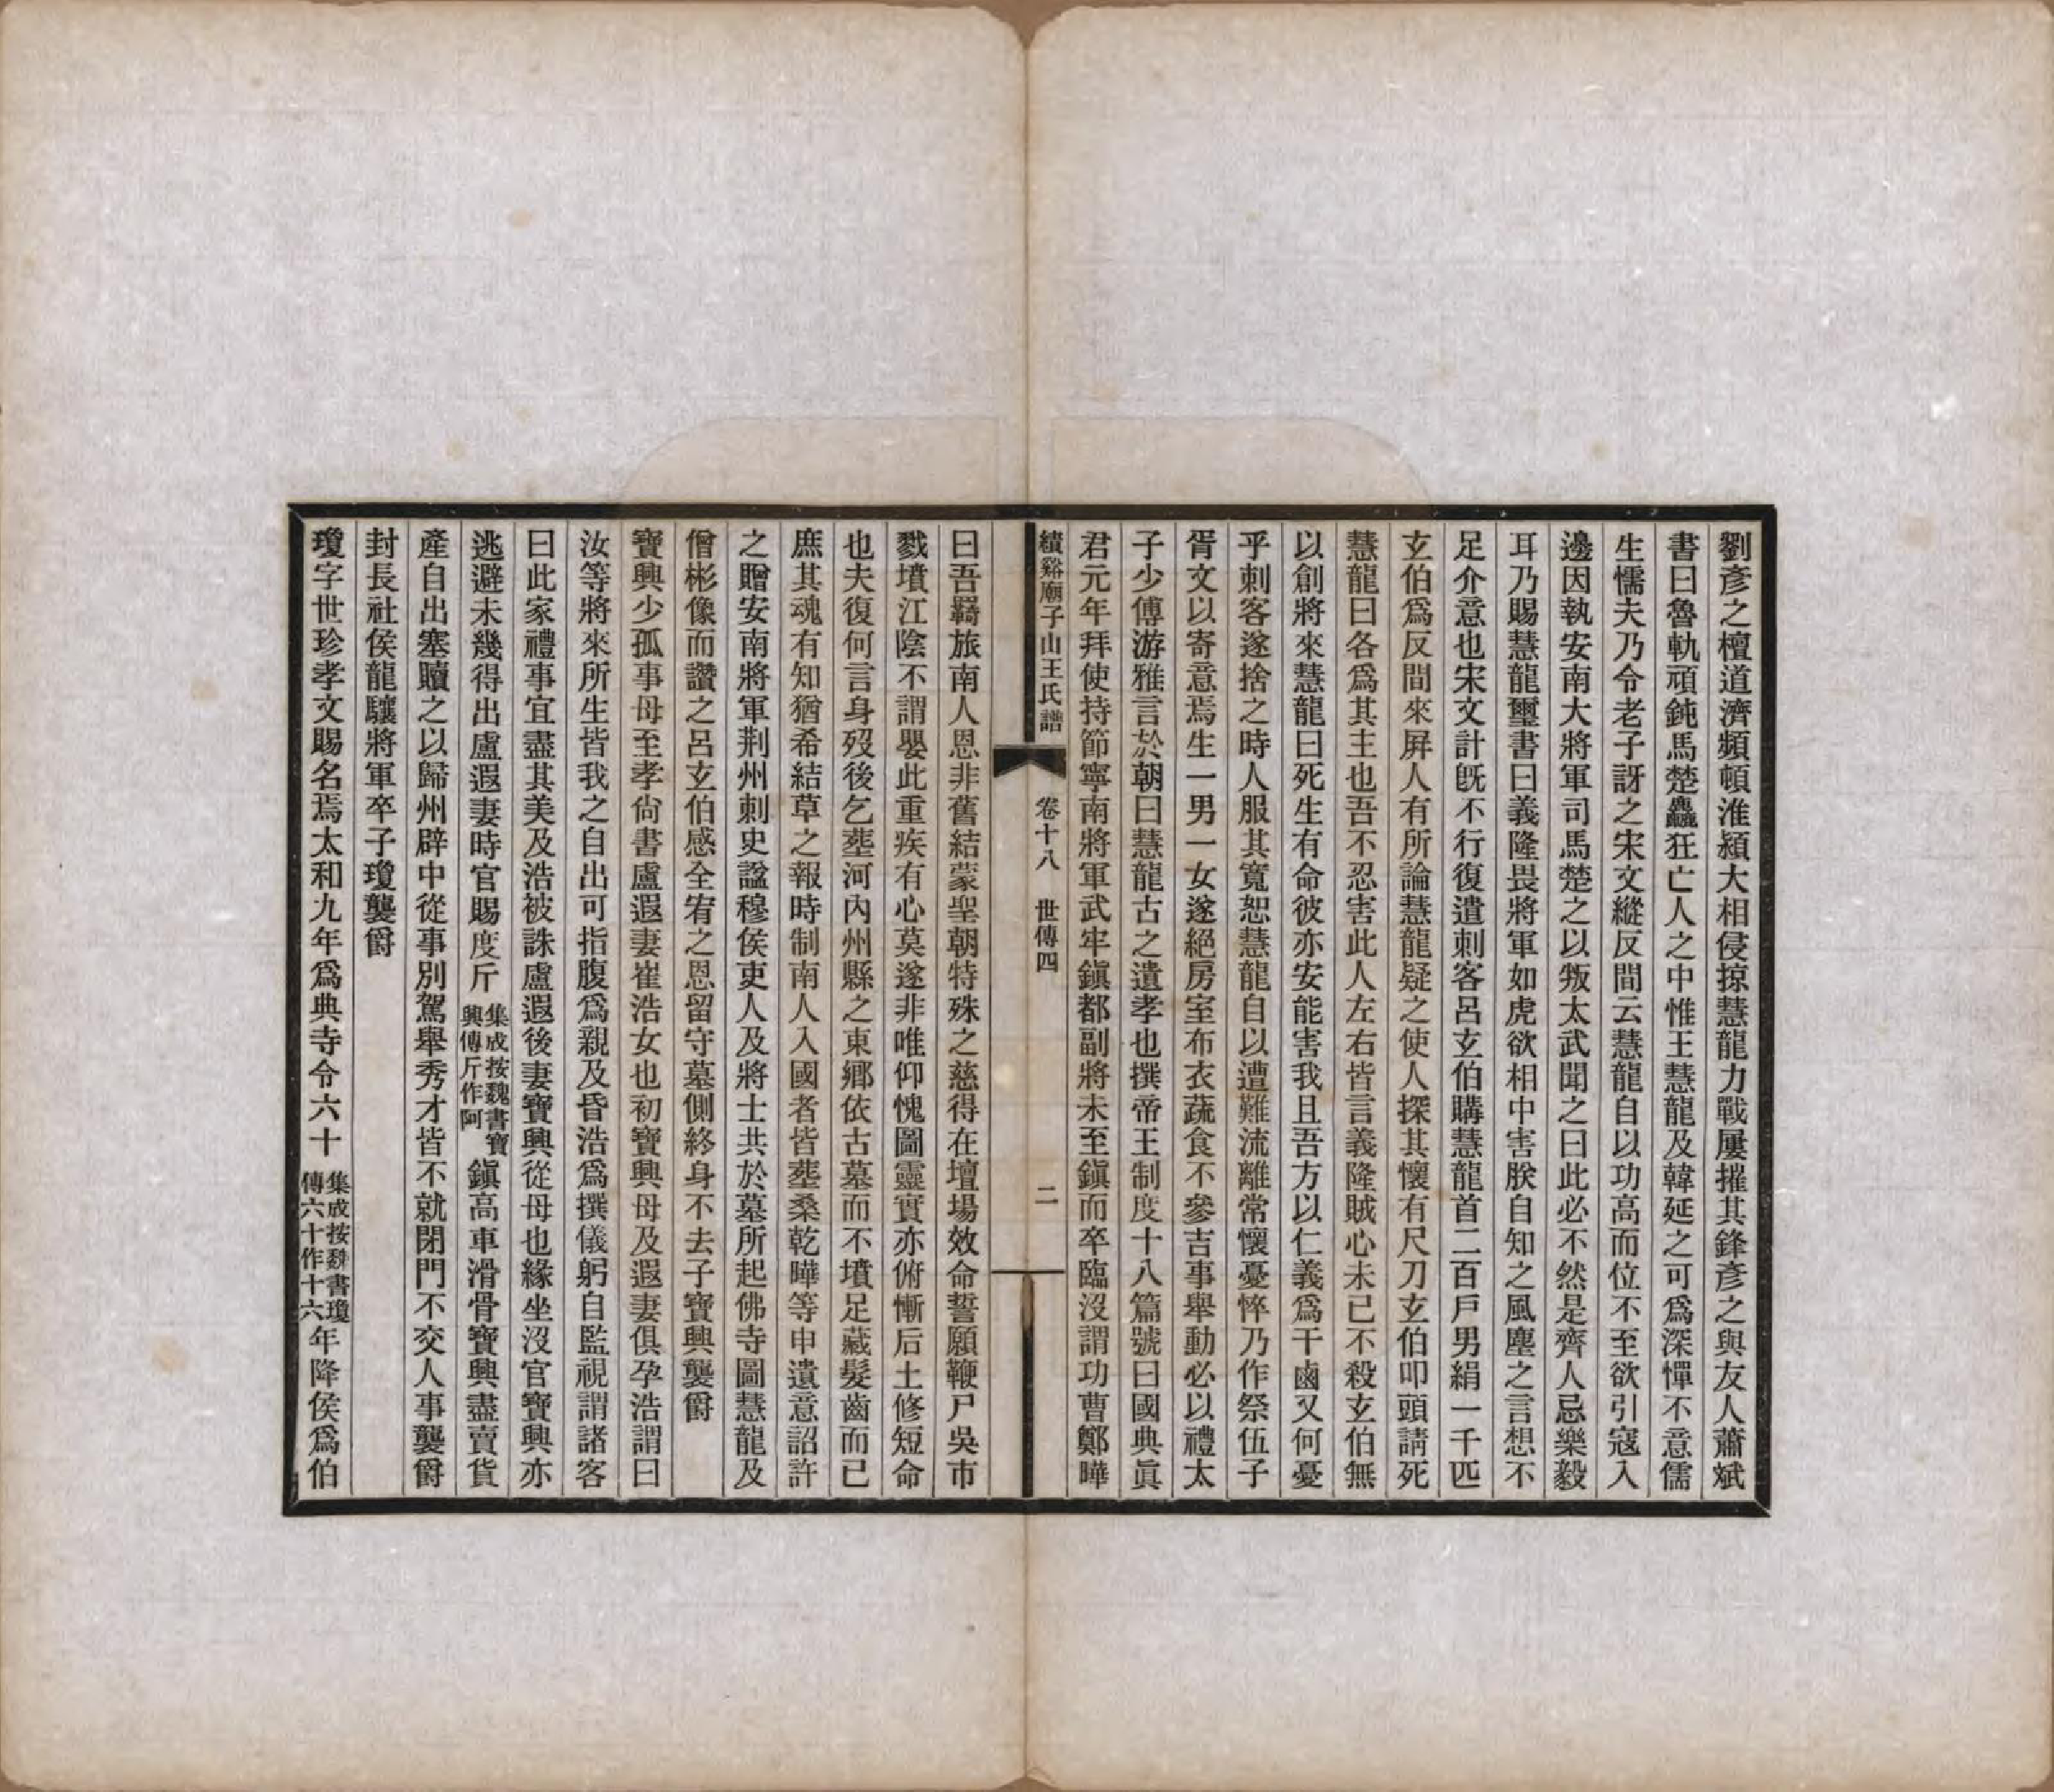 劉彥之檀道濟頻頓淮潁大相侵掠慧龍力戰屢摧其鋒彥之與友人蕭斌
書曰魯軌頑鈍馬楚麤狂亡人之中惟王慧龍及韓延之可爲深憚不意儒
生懦夫乃令老子訝之宋文縱反間云慧龍自以功高而位不至欲引寇入
邊因執安南大將軍司馬楚之以叛太武聞之曰此必不然是齊人忌樂毅
耳乃賜慧龍璽書曰義隆畏將軍如虎欲相中害朕自知之風塵之言想不
足介意也宋文計旣不行復遣刺客呂玄伯購慧龍首二百戶男絹一千匹
玄伯爲反間來屏人有所論慧龍疑之使人探其懷有尺刀玄伯叩頭請死
慧龍曰各爲其主也吾不忍害此人左右皆言義隆賊心未已不殺玄伯無
以創將來慧龍曰死生有命彼亦安能害我且吾方以仁義爲干鹵又何憂
乎刺客遂捨之時人服其寬恕慧龍自以遭難流離常懷憂悴乃作祭伍子
胥文以寄意焉生一男一女遂絕房室布衣蔬食不參吉事舉動必以禮太
子少傅游雅言於朝曰慧龍古之遺孝也撰帝王制度十八篇號曰國典眞
君元年拜使持節寧南將軍武牢鎭都副將未至鎭而卒臨沒謂功曹鄭曄
績谿廟子山王氏譜　卷十八　世傳四　二
曰吾羇旅南人恩非舊結蒙聖朝特殊之慈得在壇場效命誓願鞭尸吳市
戮墳江陰不謂嬰此重疾有心莫遂非唯仰愧圖靈實亦俯慚后土修短命
也夫復何言身歿後乞葬河內州縣之東鄉依古墓而不墳足藏髮齒而已
庶其魂有知猶希結草之報時制南人入國者皆葬桑乾曄等申遺意詔許
之贈安南將軍荆州刺史諡穆侯吏人及將士共於墓所起佛寺圖慧龍及
僧彬像而讚之呂玄伯感全宥之恩留守墓側終身不去子寶興襲爵
寶興少孤事母至孝尙書盧遐妻崔浩女也初寶興母及遐妻俱孕浩謂曰
汝等將來所生皆我之自出可指腹爲親及昏浩爲撰儀躬自監視謂諸客
曰此家禮事宜盡其美及浩被誅盧遐後妻寶興從母也緣坐沒官寶興亦
逃避未幾得出盧遐妻時官賜度斤集成按魏書寶興傳斤作阿鎭高車滑骨寶興盡賣貨
產自出塞贖之以歸州辟中從事別駕舉秀才皆不就閉門不交人事襲爵
封長社侯龍驤將軍卒子瓊襲爵
瓊字世珍孝文賜名焉太和九年爲典寺令六十集成按魏書瓊傳六十作十六年降侯爲伯